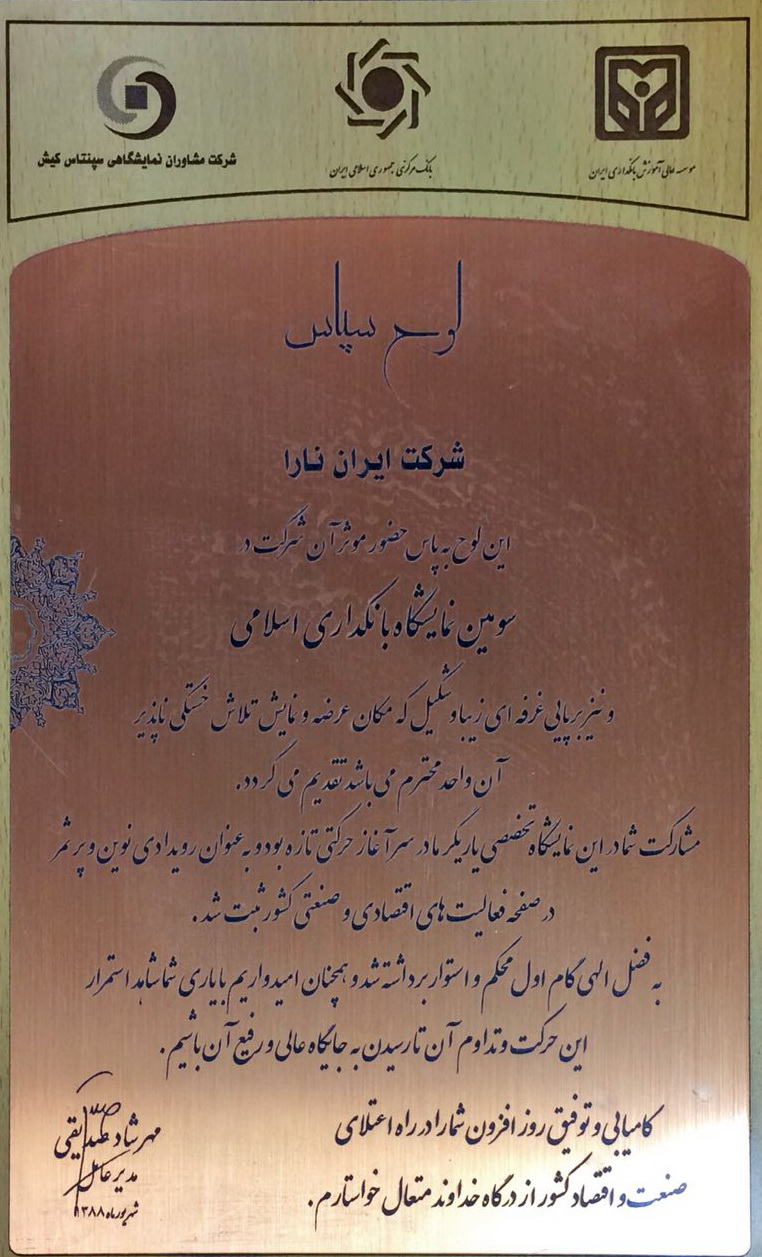 موسسه عالی آموزش بانکداری ایران
بانک مرکزی جمهوری اسلامی ایران
شرکت مشاوران نمایشگاهی سپنتاس کیش
لوح سپاس
شرکت ایران نارا
این لوح به پاس حضور موثر آن شرکت در
سومین نمایشگاه بانکداری اسلامی
و نیز برپایی غرفه ای زیبا و شکیل که مکان عرضه و نمایش تلاش خستگی ناپذیر
آن واحد محترم می باشد تقدیم می گردد.
مشارکت شما در این نمایشگاه تخصصی یاریگر ما در سر آغاز حرکتی تازه بود و به عنوان رویدادی نوین و پر ثمر
در صفحه فعالیت های اقتصادی و صنعتی کشور ثبت شد.
به فضل الهی گام اول محکم و استوار برداشته شد و همچنان امیدواریم با یاری شما شاهد استمرار
این حرکت و تداوم آن تا رسیدن به جایگاه عالی و رفیع آن باشیم.
کامیابی و توفیق روز افزون شما را در راه اعتلای
صنعت و اقتصاد کشور از درگاه خداوند متعال خواستارم.
مهرشاد صدیقی
مدیر عامل
شهریور ماه ۱۳۸۸